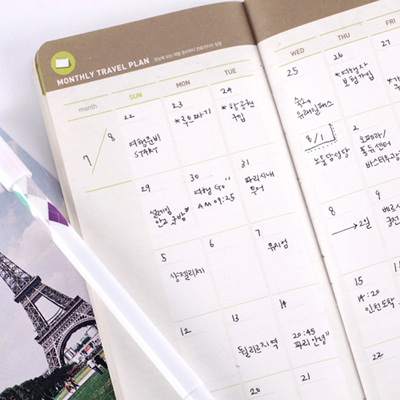 MONTHLY TRAVEL PLAN
month SUN MON TUE WED THU FRI
7/8
22
여행준비
START
23
*루트짜기
24
*항공권
구입
25
숙소
유레일패스
26
*여행자
보험가입
27
29
설레임
안고 굿밤
30
여행 Go
AM 09:25
31
파리시내
투어
8/1
노틀담성당
2
오페라/
퐁퓨센터
바스티유
5
샹젤리제
6
7
뮤지엄
8
2일
9
12
13
튈리르지역
14
20:45
파리안녕
15
14:20
인천도착
16
20
21
22